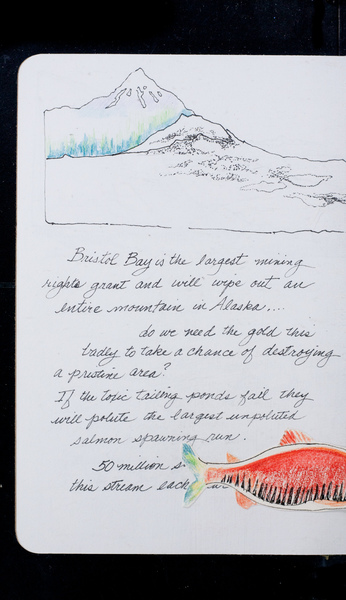 Bristol Bay is the largest mining
rights grant and will wipe out an
entire mountain in Alaska....
do we need the gold this
badly to take a chance of destroying
a pristine area?
If the toxic tailing ponds fail they
will polute the largest unpoluted
salmon spawning run.
50 million s
this stream each